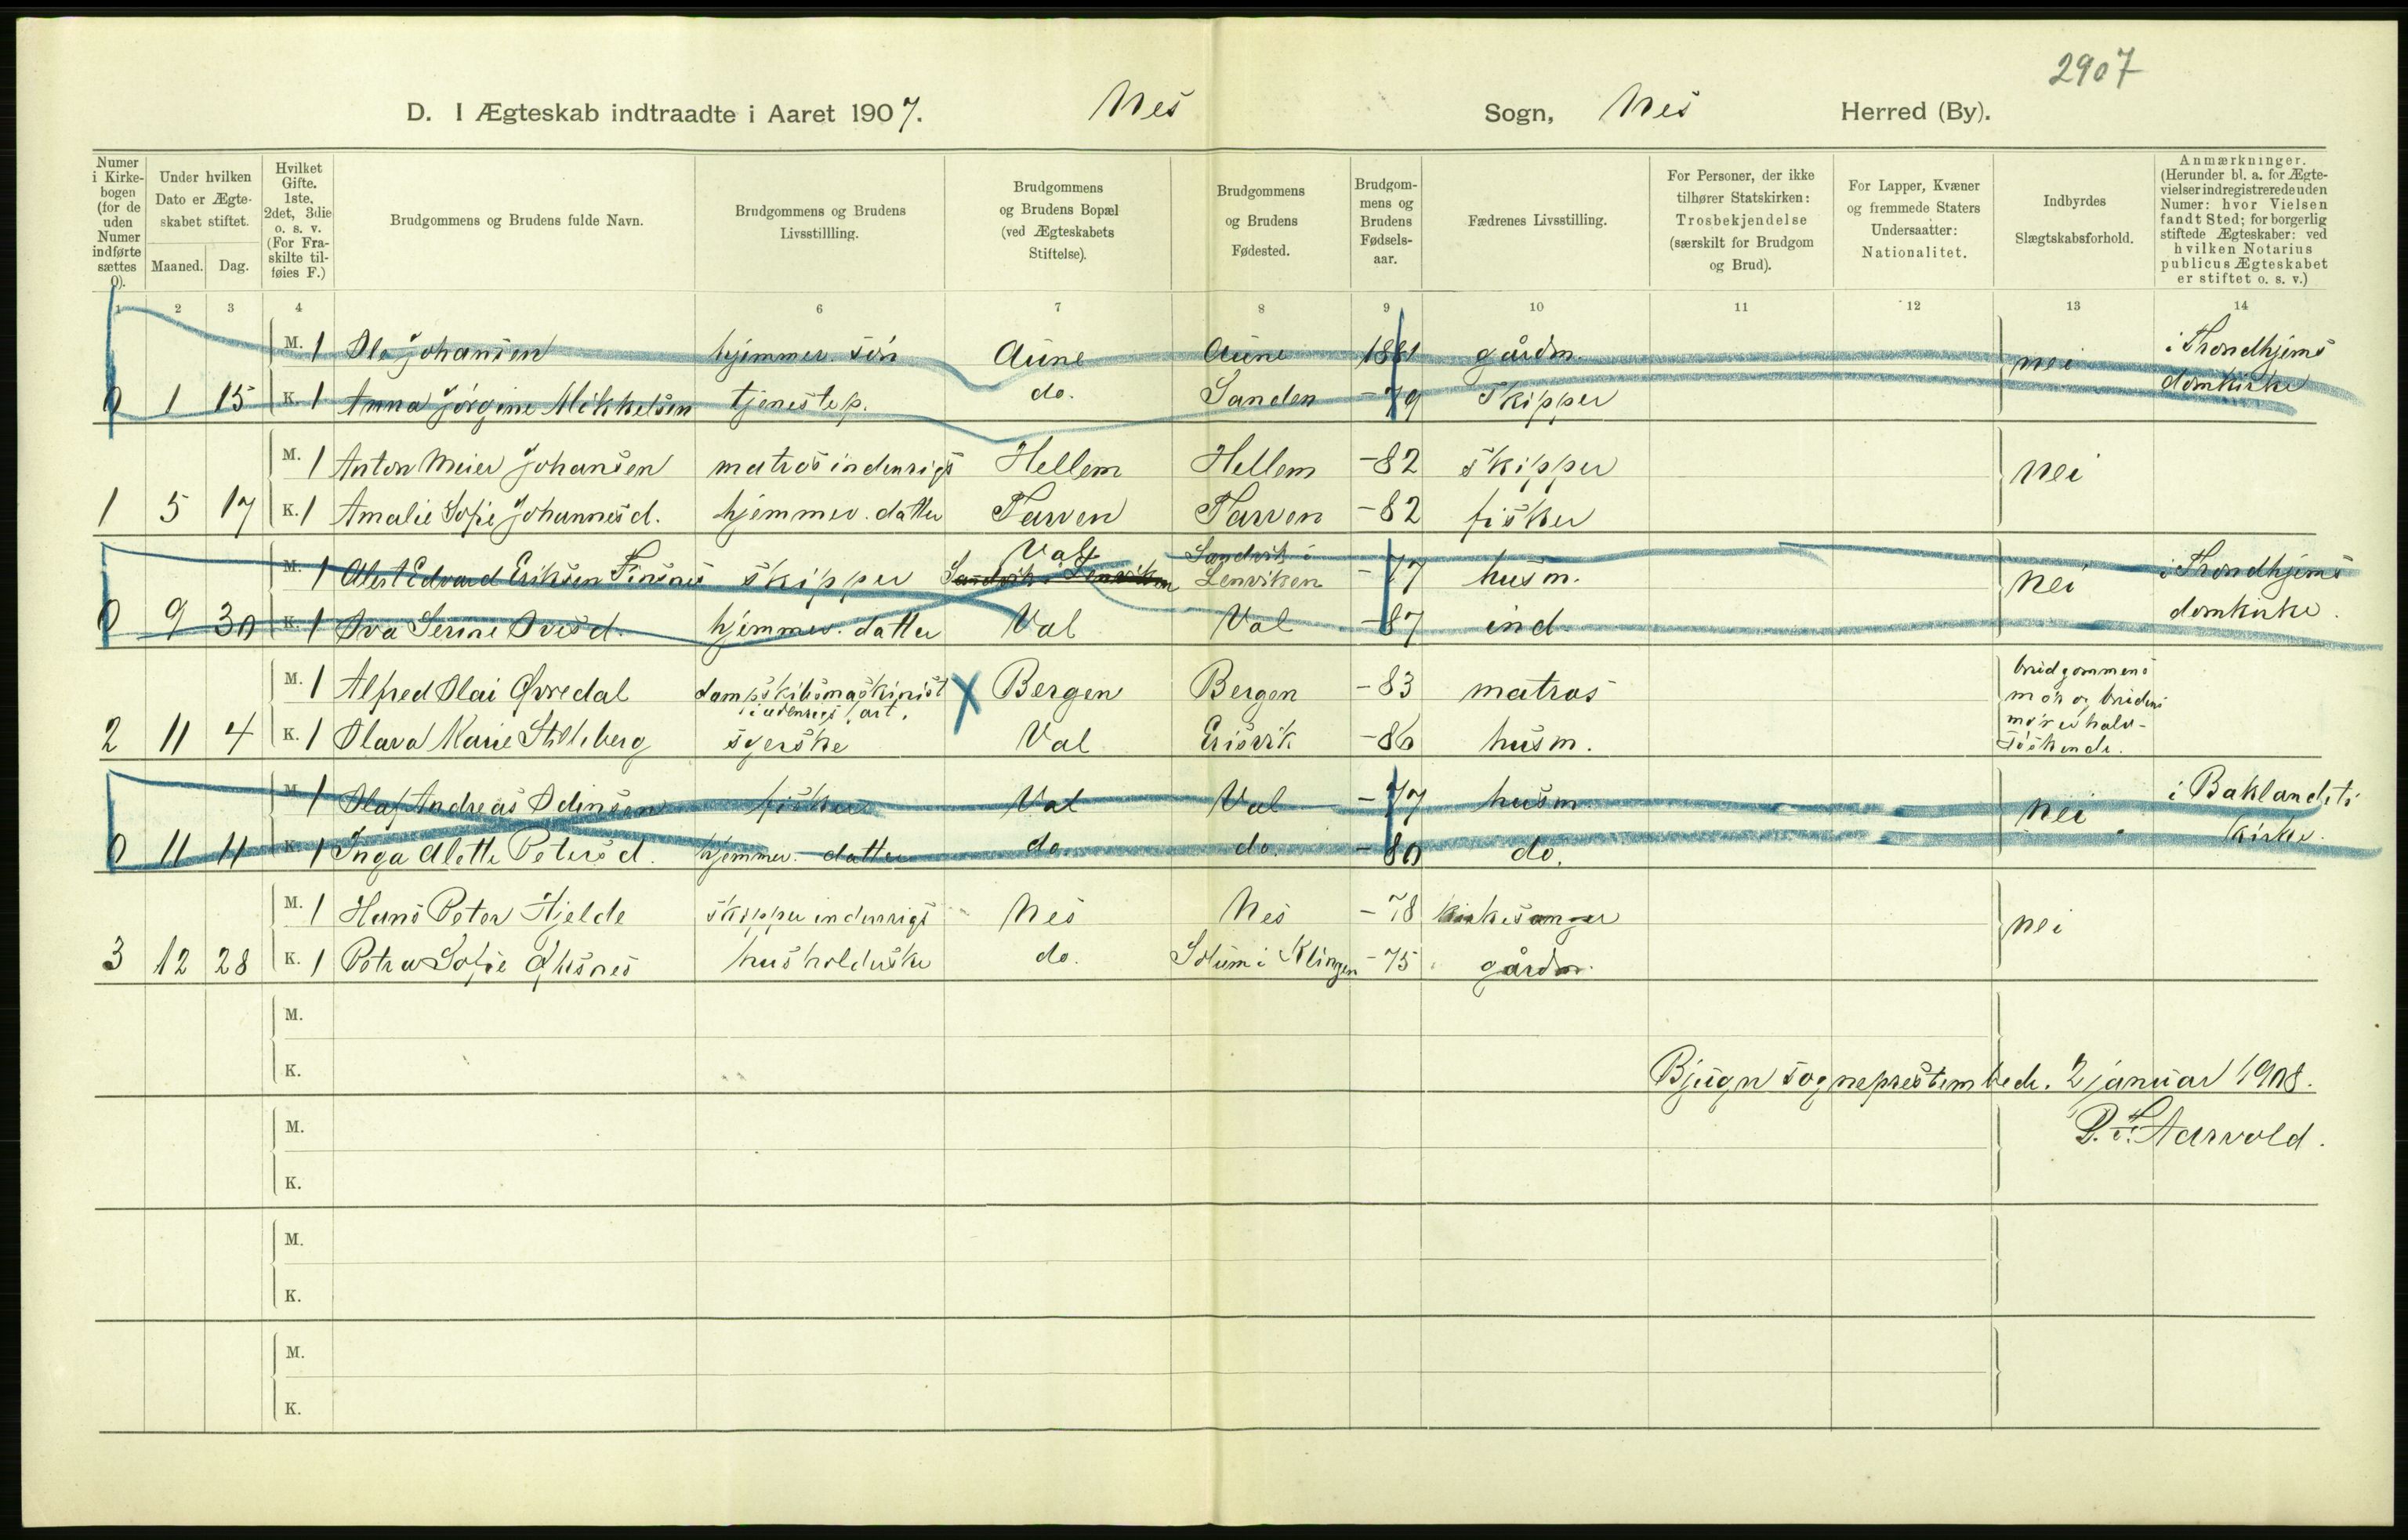 2907
D. I Ægteskab indtraadte i Aaret 1907. Nes Sogn, Nes Herred (By).
Numer i Kirkebogen (for de uden Numer indførte sættes 0).
Under hvilken Dato er Ægteskabet stiftet.
Maaned. Dag.
Hvilket Gifte. 1ste, 2det, 3die o. s. v. (For Fraskilte tilføies F.)
Brudgommens og Brudens fulde Navn.
Brudgommens og Brudens Livsstillling.
Brudgommens og Brudens Bopæl (ved Ægteskabets Stiftelse).
Brudgommens og Brudens Fødested.
Brudgommens og Brudens Fødselsaar.
Fædrenes Livsstilling.
For Personer, der ikke tilhører Statskirken: Trosbekjendelse (særskilt for Brudgom og Brud).
For Lapper, Kvæner og fremmede Staters Undersaatter: Nationalitet.
Indbyrdes Slægtskabsforhold.
Anmærkninger. (Herunder bl. a. for Ægtevielser indregistrerede uden Numer: hvor Vielsen fandt Sted; for borgerlig stiftede Ægteskaber: ved hvilken Notarius publicus Ægteskabet er stiftet o. s. v.)
1 2 3 4 6 7 8 9 10 11 12 13 14
M. 1 Ole Johansen hjemmev. søn Aune Aune 1881 gårdm. nei i Trondhjems
0 1 15 K. 1 Anna Jørgine Mikkelsen tjenestep. do. Sanden -79 skipper domkirke
M. 1 Anton Meier Johansen matros indenrigs Hellem Hellem -82 skipper nei
1 5 17 K. 1 Amalie Sofie Johannesd. hjemmev. datter Tarven Tarven -82 fisker
M. 1 Edvard Eriksen Finsnes skipper Val Sandvik i Lenviken -77 husm. nei i Trondhjems
0 9 30 K. 1 Serine hjemmev. datter Val Val -87 ind. domkirke.
M. 1 Alfred Olai Øvredal dampskibsmaskinist i udenrigs fart. X Bergen Bergen -83 matros brudgommens mor og brudens mor er halv-søskende.
2 11 4 K. 1 Olava Marie syerske Val -86 husm.
M. 1 Olaf Andreas Odinsen fisker Val Val -77 husm. nei i Baklandets
0 11 11 K. 1 Inga Alette Petersd. hjemmev. datter do. do. -80 do. kirke.
M. 1 Hans Peter Hjelde skipper indenrigs Nes Nes -78 kirkesanger nei
3 12 28 K. 1 Petra Sofie husholderske do. Solum i Klingen -75 gårdm.
M.
K.
Bjugn sogneprestembede. 2 januar 1908.
M. Aarvold.
K.
M.
K.
M.
K.